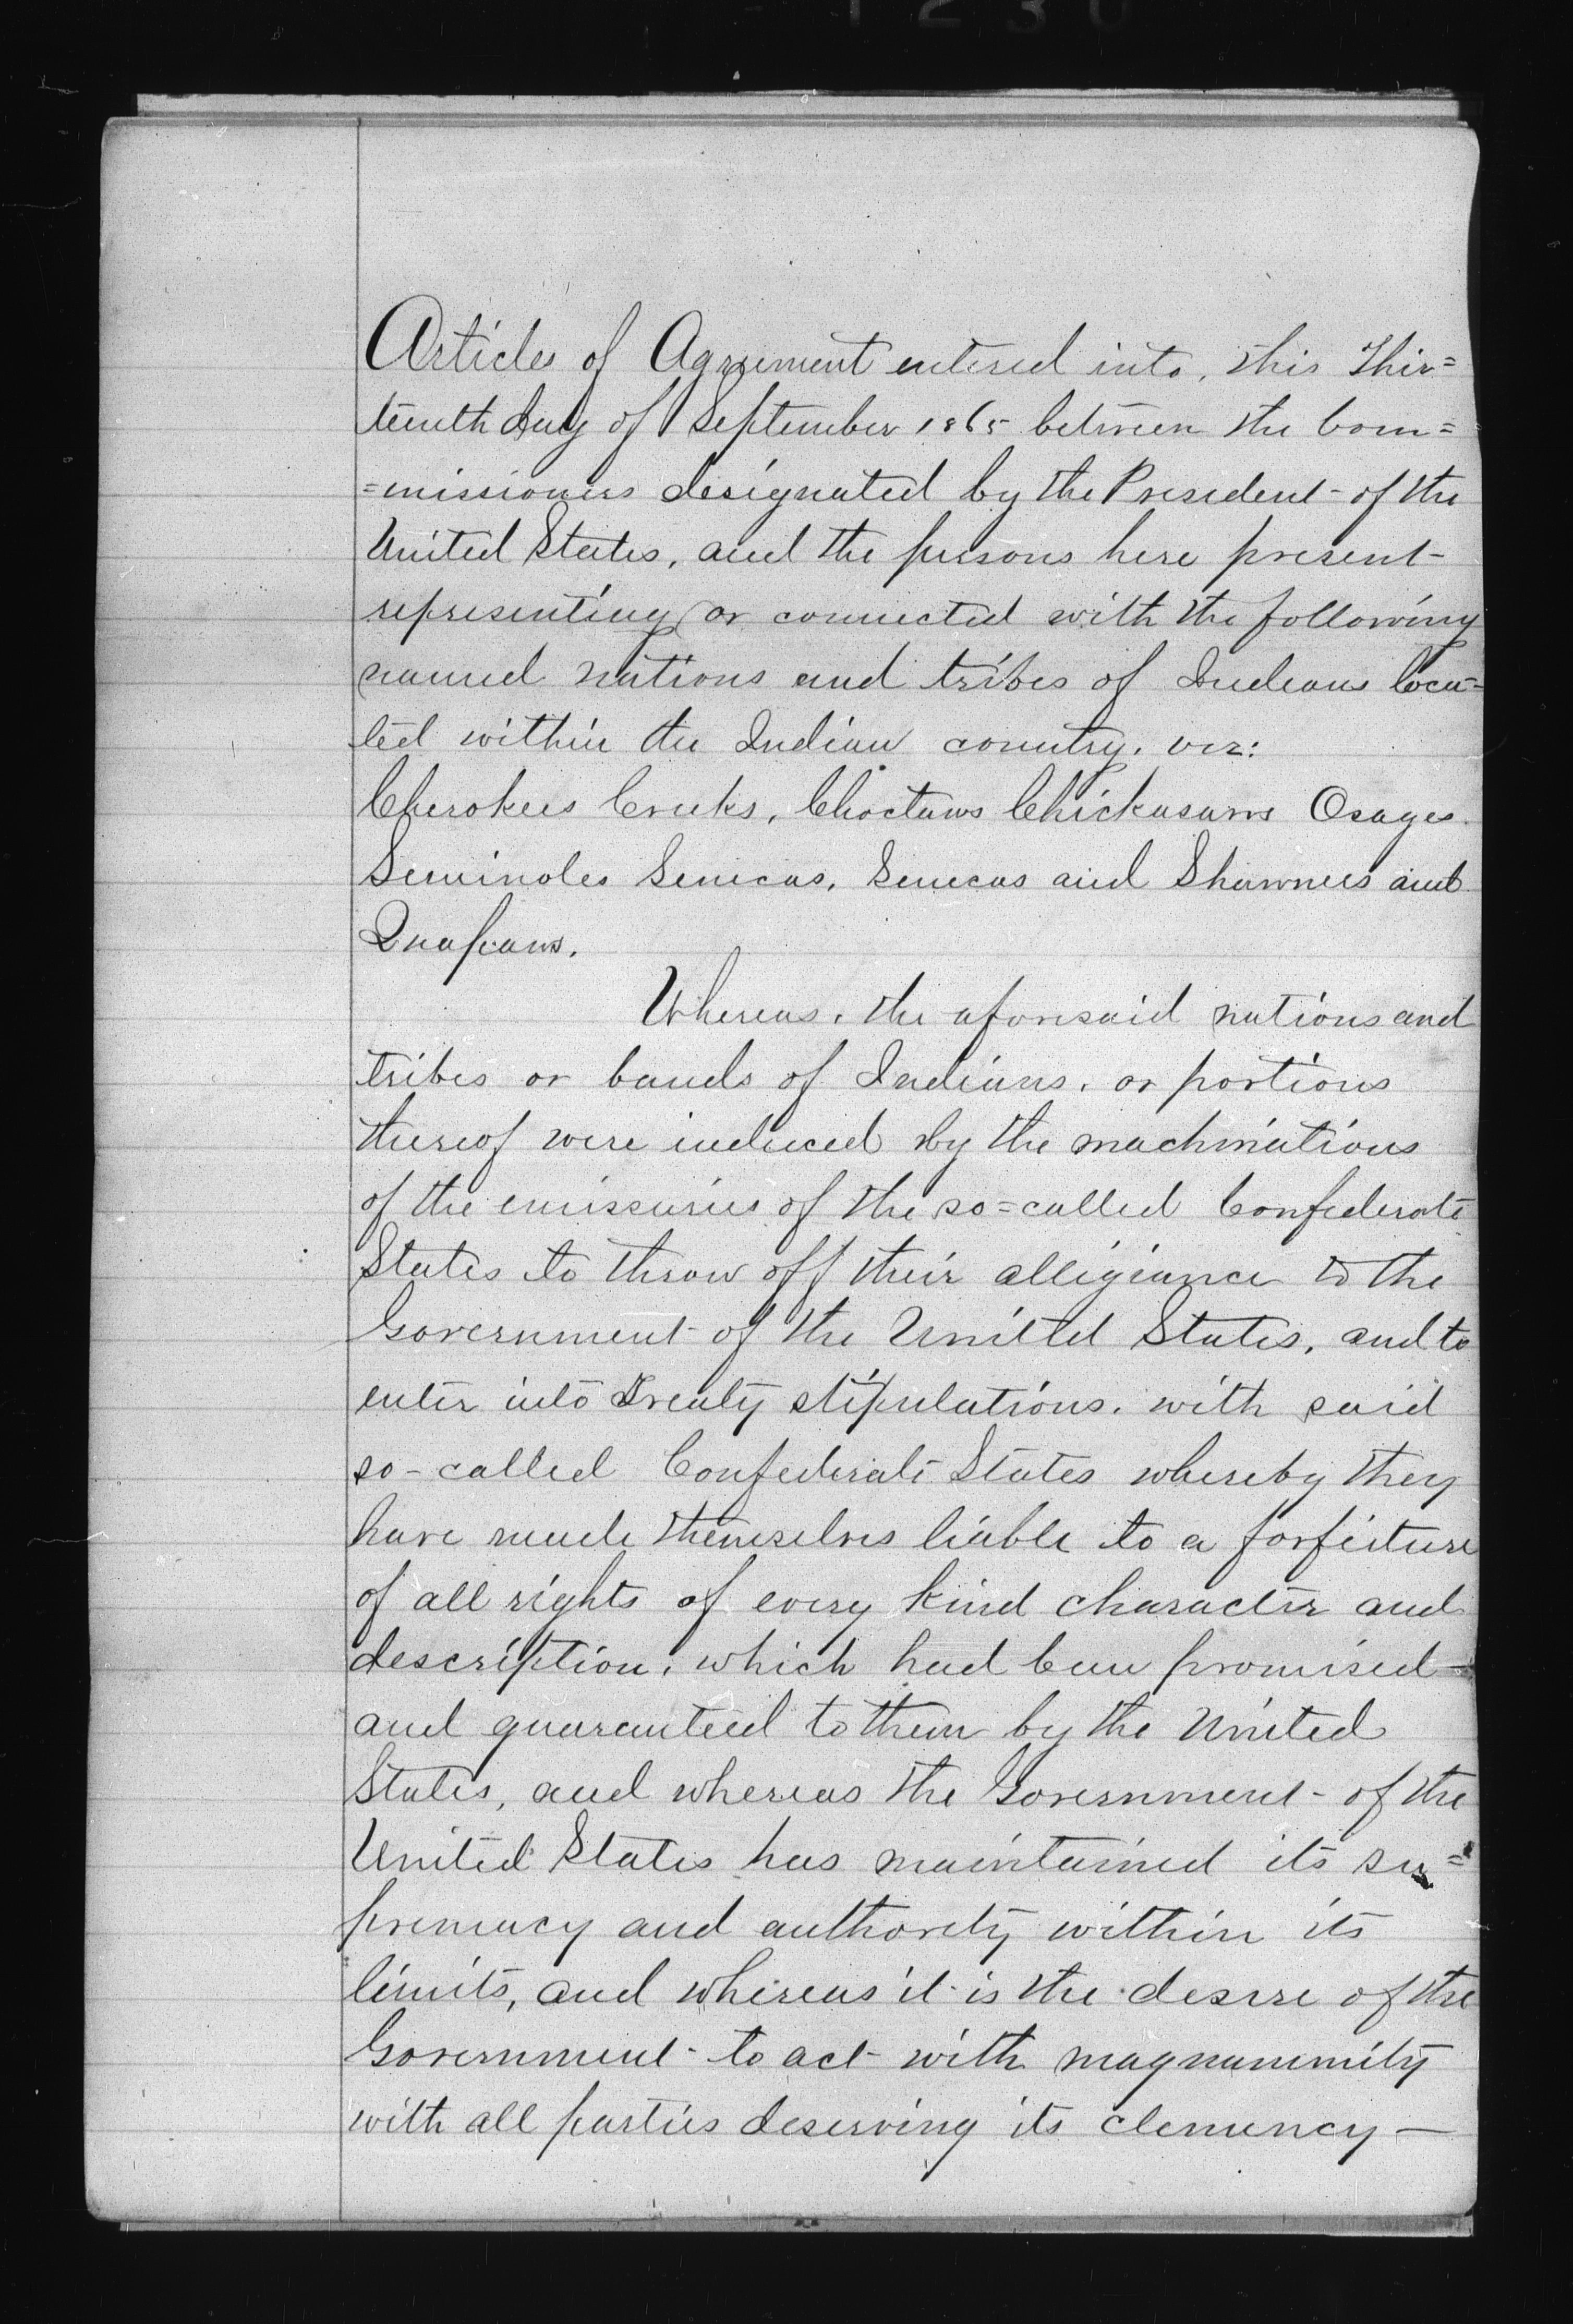 Articles of Agreement entered into, this Thir=
teenth day of September 1865 between the Com=
=missioners designated by the President of the
United States, and the persons here present
representing or connected with the following
named nations and tribes of Indians loca=
ted within the Indian country. viz:
Cherokees Creeks, Choctaws Chickasaws Osages.
Seminoles Senecas, Senecas and Shawnees and
Quapaws.
Whereas, the aforesaid nations and
tribes or bands of Indians, or portions
thereof were induced by the machinations
of the emissaries of the so=called Confederate
States to throw off their allegiance to the
Government of the United States, and to
enter into Treaty stipulations, with said
so-called Confederate States whereby they
have made themselves liable to a forfeiture
of all rights of every kind character and
description, which had been promised
and guaranteed to them by the United
States, and whereas the Government of the
United States has maintained its su=
premacy and authority within its
limits, and whereas it is the desire of the
Government to act with magnanimity
with all parties deserving its clemency —